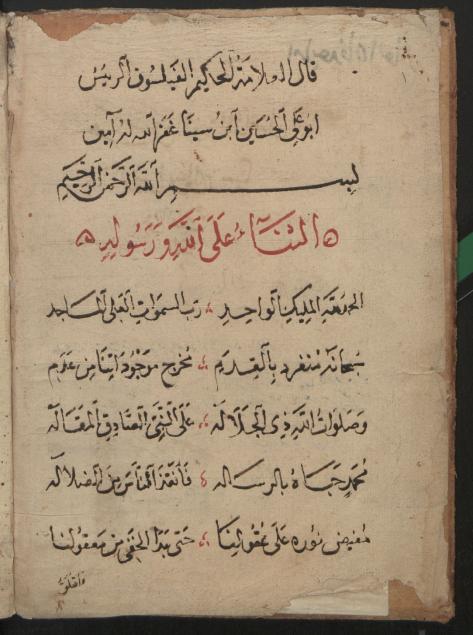 قال العلامة الحكيم الفيلسوف الرئيس
ابو على الحسين ابن سينا غفر الله له آمين
بسم الله الرحمن الرحيم
الثناء على الله ورسوله
الحمد لله المليك الواحد رب السموات العلى الماجد
سبحانه منفرد بالقدم مخرج موجوداتنا من عدم
وصلوات الله ذى الجلاله على النبى الصادق المقاله
محمد حباه بالرساله فأنقذ الناس من الضلاله
مفيض نوره على عقولنا حتى بدا الخفى من معقولنا